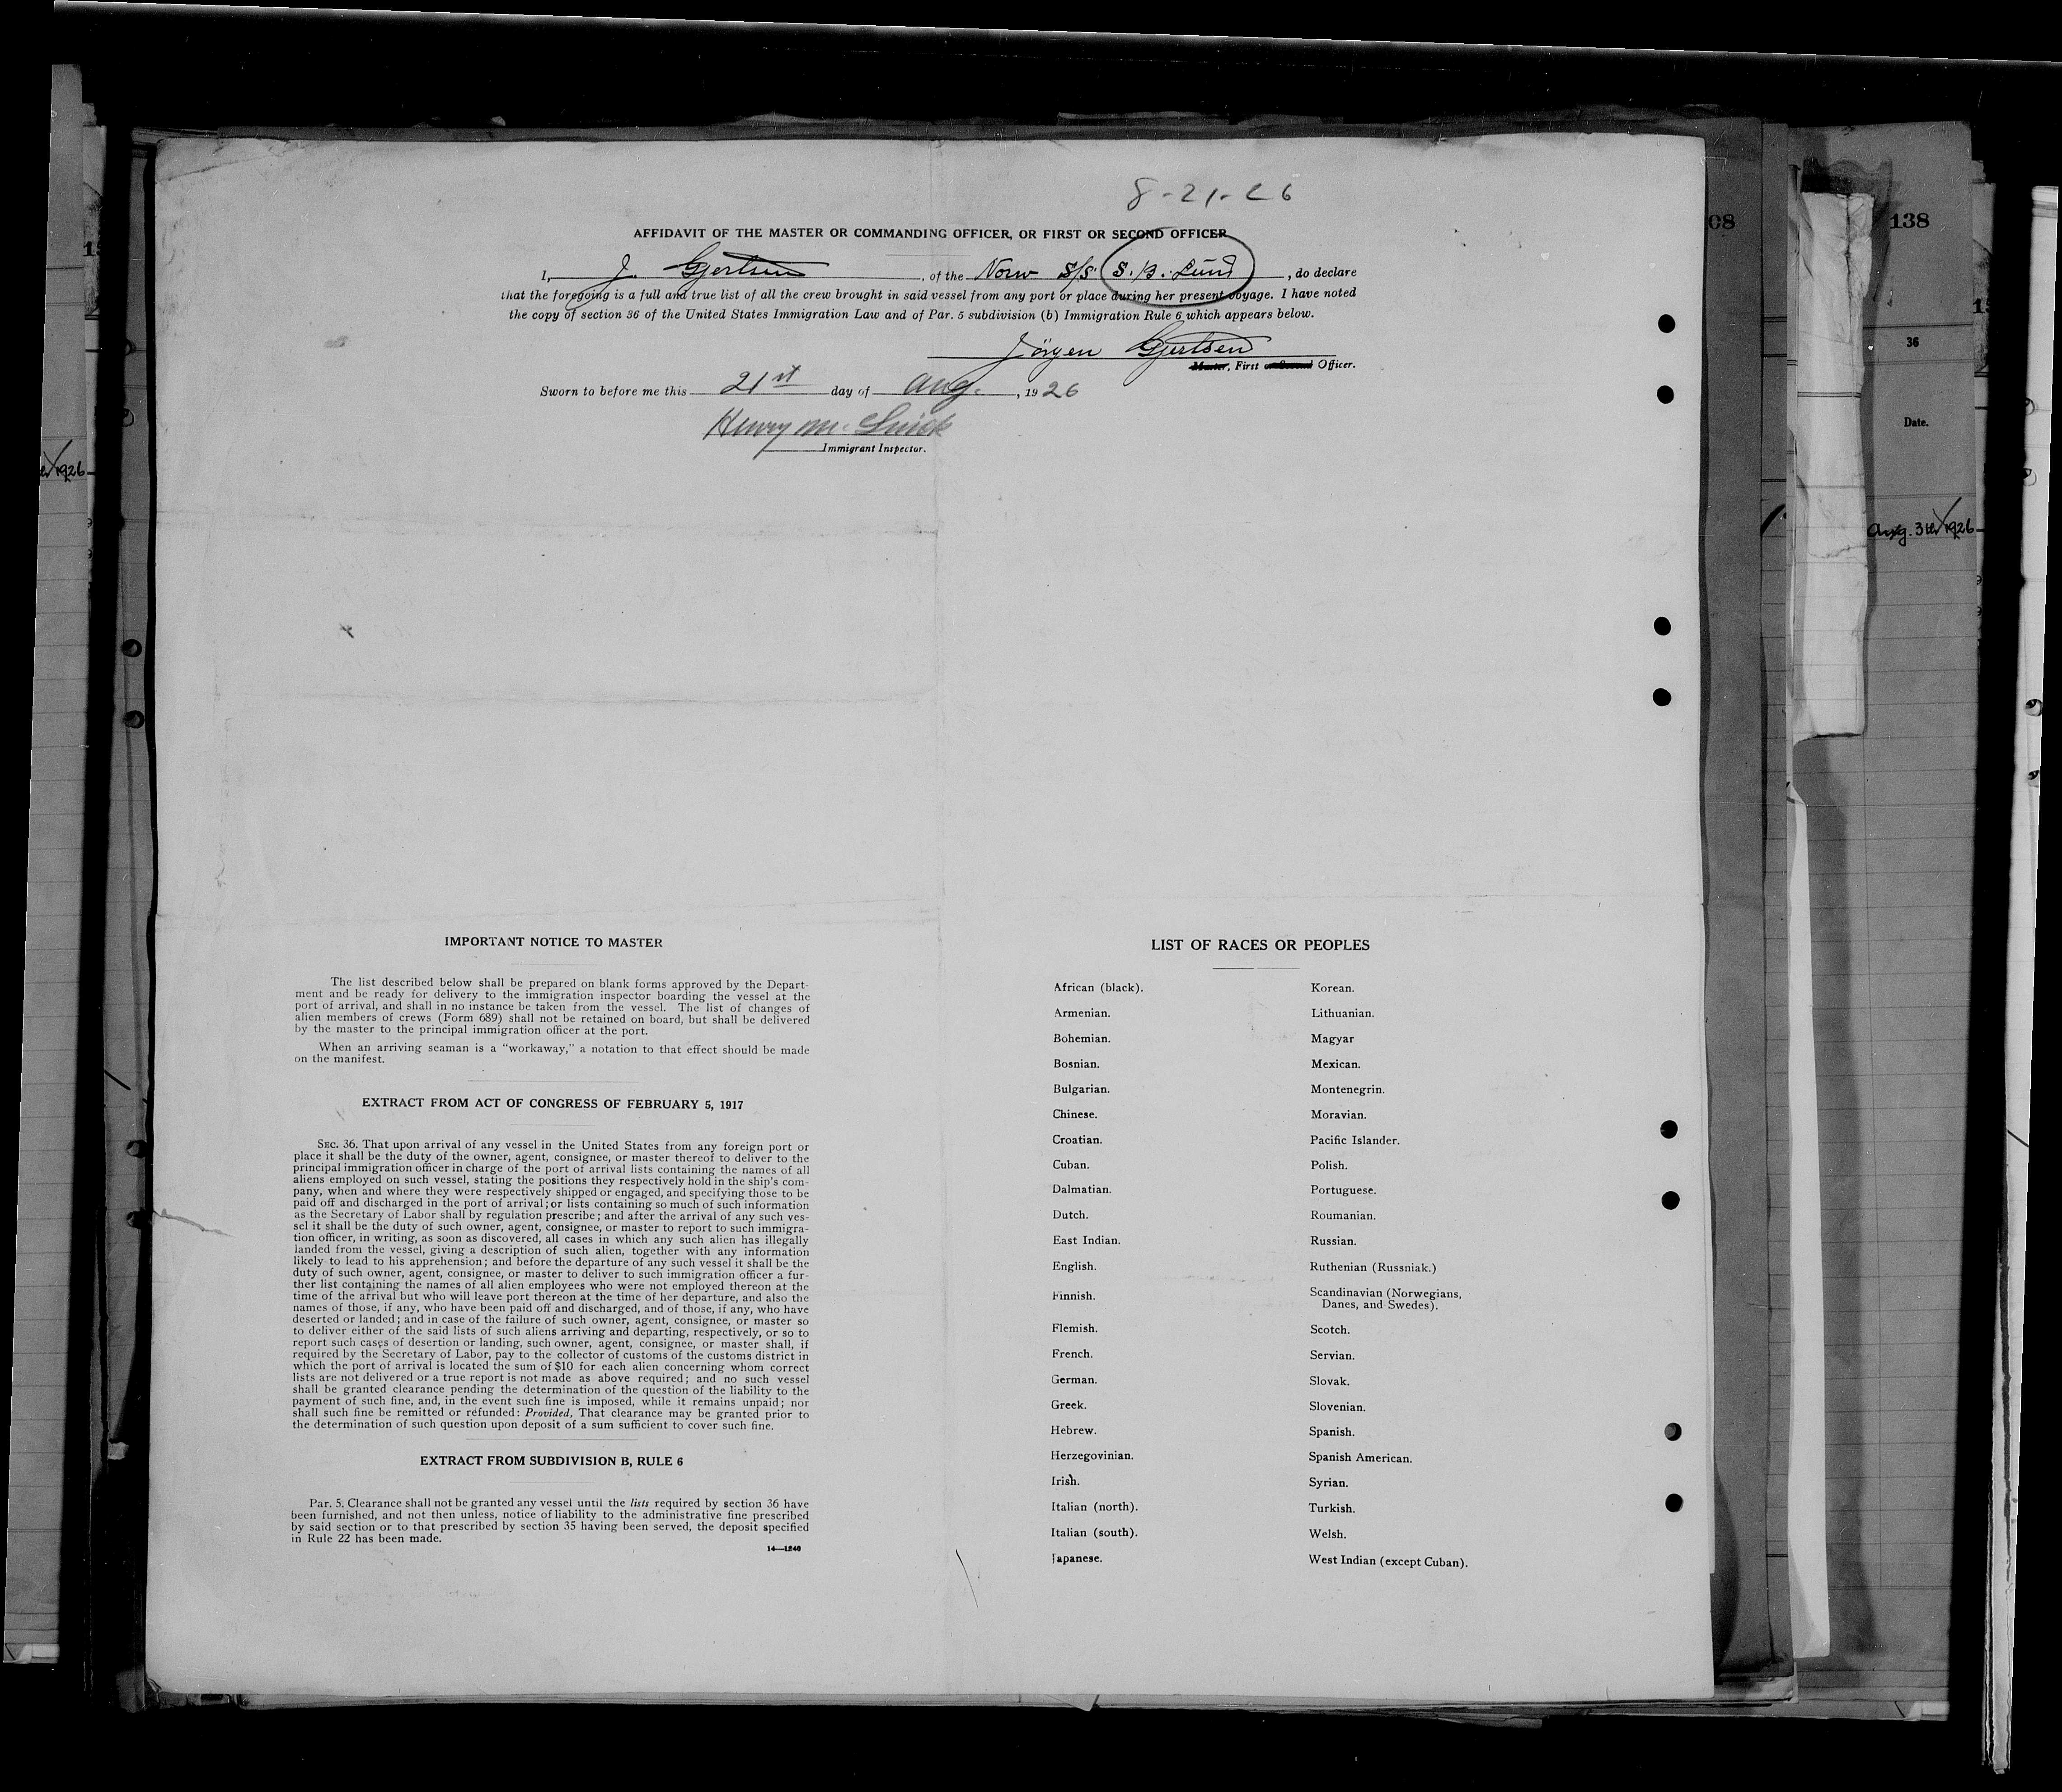 8-21-26
AFFIDAVIT OF THE MASTER OR COMMANDING OFFICER, OR FIRST OR SECOND OFFICER
I, J. Gjertsen, of the Norw S/S S. B. Lund, do declare
that the foregoing is a full and true list of all the crew brought in said vessel from any port or place during her present voyage. I have noted
the copy of section 36 of the United States Immigration Law and of Par. 5 subdivision (b) Immigration Rule 6 which appears below.
Jörgen Gjertsen
Master, First or Second Officer.
Sworn to before me this 21st day of Aug., 1926
Henry M.
Immigrant Inspector.
IMPORTANT NOTICE TO MASTER
The list described below shall be prepared on blank forms approved by the Depart-
ment and be ready for delivery to the immigration inspector boarding the vessel at the
port of arrival, and shall in no instance be taken from the vessel. The list of changes of
alien members of crews (Form 689) shall not be retained on board, but shall be delivered
by the master to the principal immigration officer at the port.
When an arriving seaman is a "workaway," a notation to that effect should be made
on the manifest.
EXTRACT FROM ACT OF CONGRESS OF FEBRUARY 5, 1917
SEC. 36. That upon arrival of any vessel in the United States from any foreign port or
place it shall be the duty of the owner, agent, consignee, or master thereof to deliver to the
principal immigration officer in charge of the port of arrival lists containing the names of all
aliens employed on such vessel, stating the positions they respectively hold in the ship's com-
pany, when and where they were respectively shipped or engaged, and specifying those to be
paid off and discharged in the port of arrival; or lists containing so much of such information
as the Secretary of Labor shall by regulation prescribe; and after the arrival of any such ves-
sel it shall be the duty of such owner, agent, consignee, or master to report to such immigra-
tion officer, in writing, as soon as discovered, all cases in which any such alien has illegally
landed from the vessel, giving a description of such alien, together with any information
likely to lead to his apprehension; and before the departure of any such vessel it shall be the
duty of such owner, agent, consignee, or master to deliver to such immigration officer a fur-
ther list containing the names of all alien employees who were not employed thereon at the
time of the arrival but who will leave port thereon at the time of her departure, and also the
names of those, if any, who have been paid off and discharged, and of those, if any, who have
deserted or landed; and in case of the failure of such owner, agent, consignee, or master so
to deliver either of the said lists of such aliens arriving and departing, respectively, or so to
report such cases of desertion or landing, such owner, agent, consignee, or master shall, if
required by the Secretary of Labor, pay to the collector of customs of the customs district in
which the port of arrival is located the sum of $10 for each alien concerning whom correct
lists are not delivered or a true report is not made as above required; and no such vessel
shall be granted clearance pending the determination of the question of the liability to the
payment of such fine, and, in the event such fine is imposed, while it remains unpaid; nor
shall such fine be remitted or refunded: Provided, That clearance may be granted prior to
the determination of such question upon deposit of a sum sufficient to cover such fine.
EXTRACT FROM SUBDIVISION B, RULE 6
Par. 5. Clearance shall not be granted any vessel until the lists required by section 36 have
been furnished, and not then unless, notice of liability to the administrative fine prescribed
by said section or to that prescribed by section 35 having been served, the deposit specified
in Rule 22 has been made.
14—1240
LIST OF RACES OR PEOPLES
African (black).
Armenian.
Bohemian.
Bosnian.
Bulgarian.
Chinese.
Croatian.
Cuban.
Dalmatian.
Dutch.
East Indian.
English.
Finnish.
Flemish.
French.
German.
Greek.
Hebrew.
Herzegovinian.
Irish.
Italian (north).
Italian (south).
Japanese.
Korean.
Lithuanian.
Magyar
Mexican.
Montenegrin.
Moravian.
Pacific Islander.
Polish.
Portuguese.
Roumanian.
Russian.
Ruthenian (Russniak.)
Scandinavian (Norwegians,
Danes, and Swedes).
Scotch.
Servian.
Slovak.
Slovenian.
Spanish.
Spanish American.
Syrian.
Turkish.
Welsh.
West Indian (except Cuban).
138
36
Date.